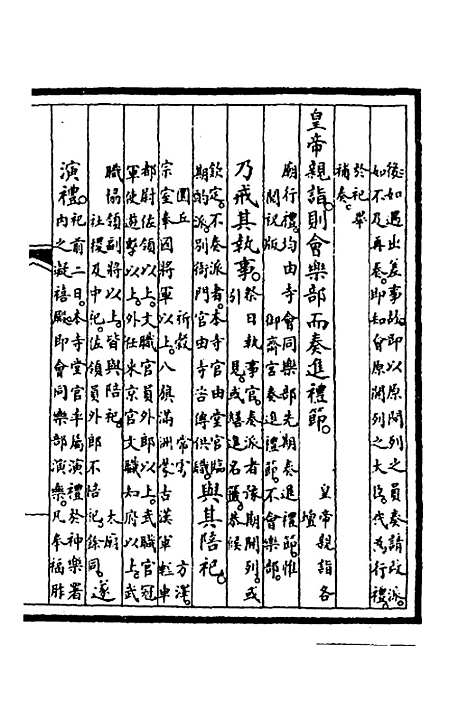 後如遇出差事故即以原開列之員奏請改派
如不及再奏即知會原開列之大臣代為行禮
於祀畢
補奏
皇帝親詣則會樂部而奏進禮節 皇帝親詣各
壇
廟行禮均由寺會同樂部先期奏進禮節惟
閱祝版 御齋宮奏進禮節不會樂部
乃戒其執事 祭日執事官奏派者豫期開列或
引 見或繕進名籤恭候
欽定不奏派者本寺官由堂官臨
期酌派別衙門官由寺咨傳供職 與其陪祀
圜丘 祈穀 常雩 方澤
宗室奉國將軍以上八旗滿洲蒙古漢軍輕車
都尉佐領以上文職官員外郎以上武職官冠
軍使遊擊以上外任來京官文職知府以上武
職協領副將以上皆與陪祀 太廟
社稷及中祀佐領員外郎不陪祀餘同 遂
演禮 祀前二日本寺堂官率屬演禮於神樂署
內之凝禧殿即會同樂部演樂凡奉福胙